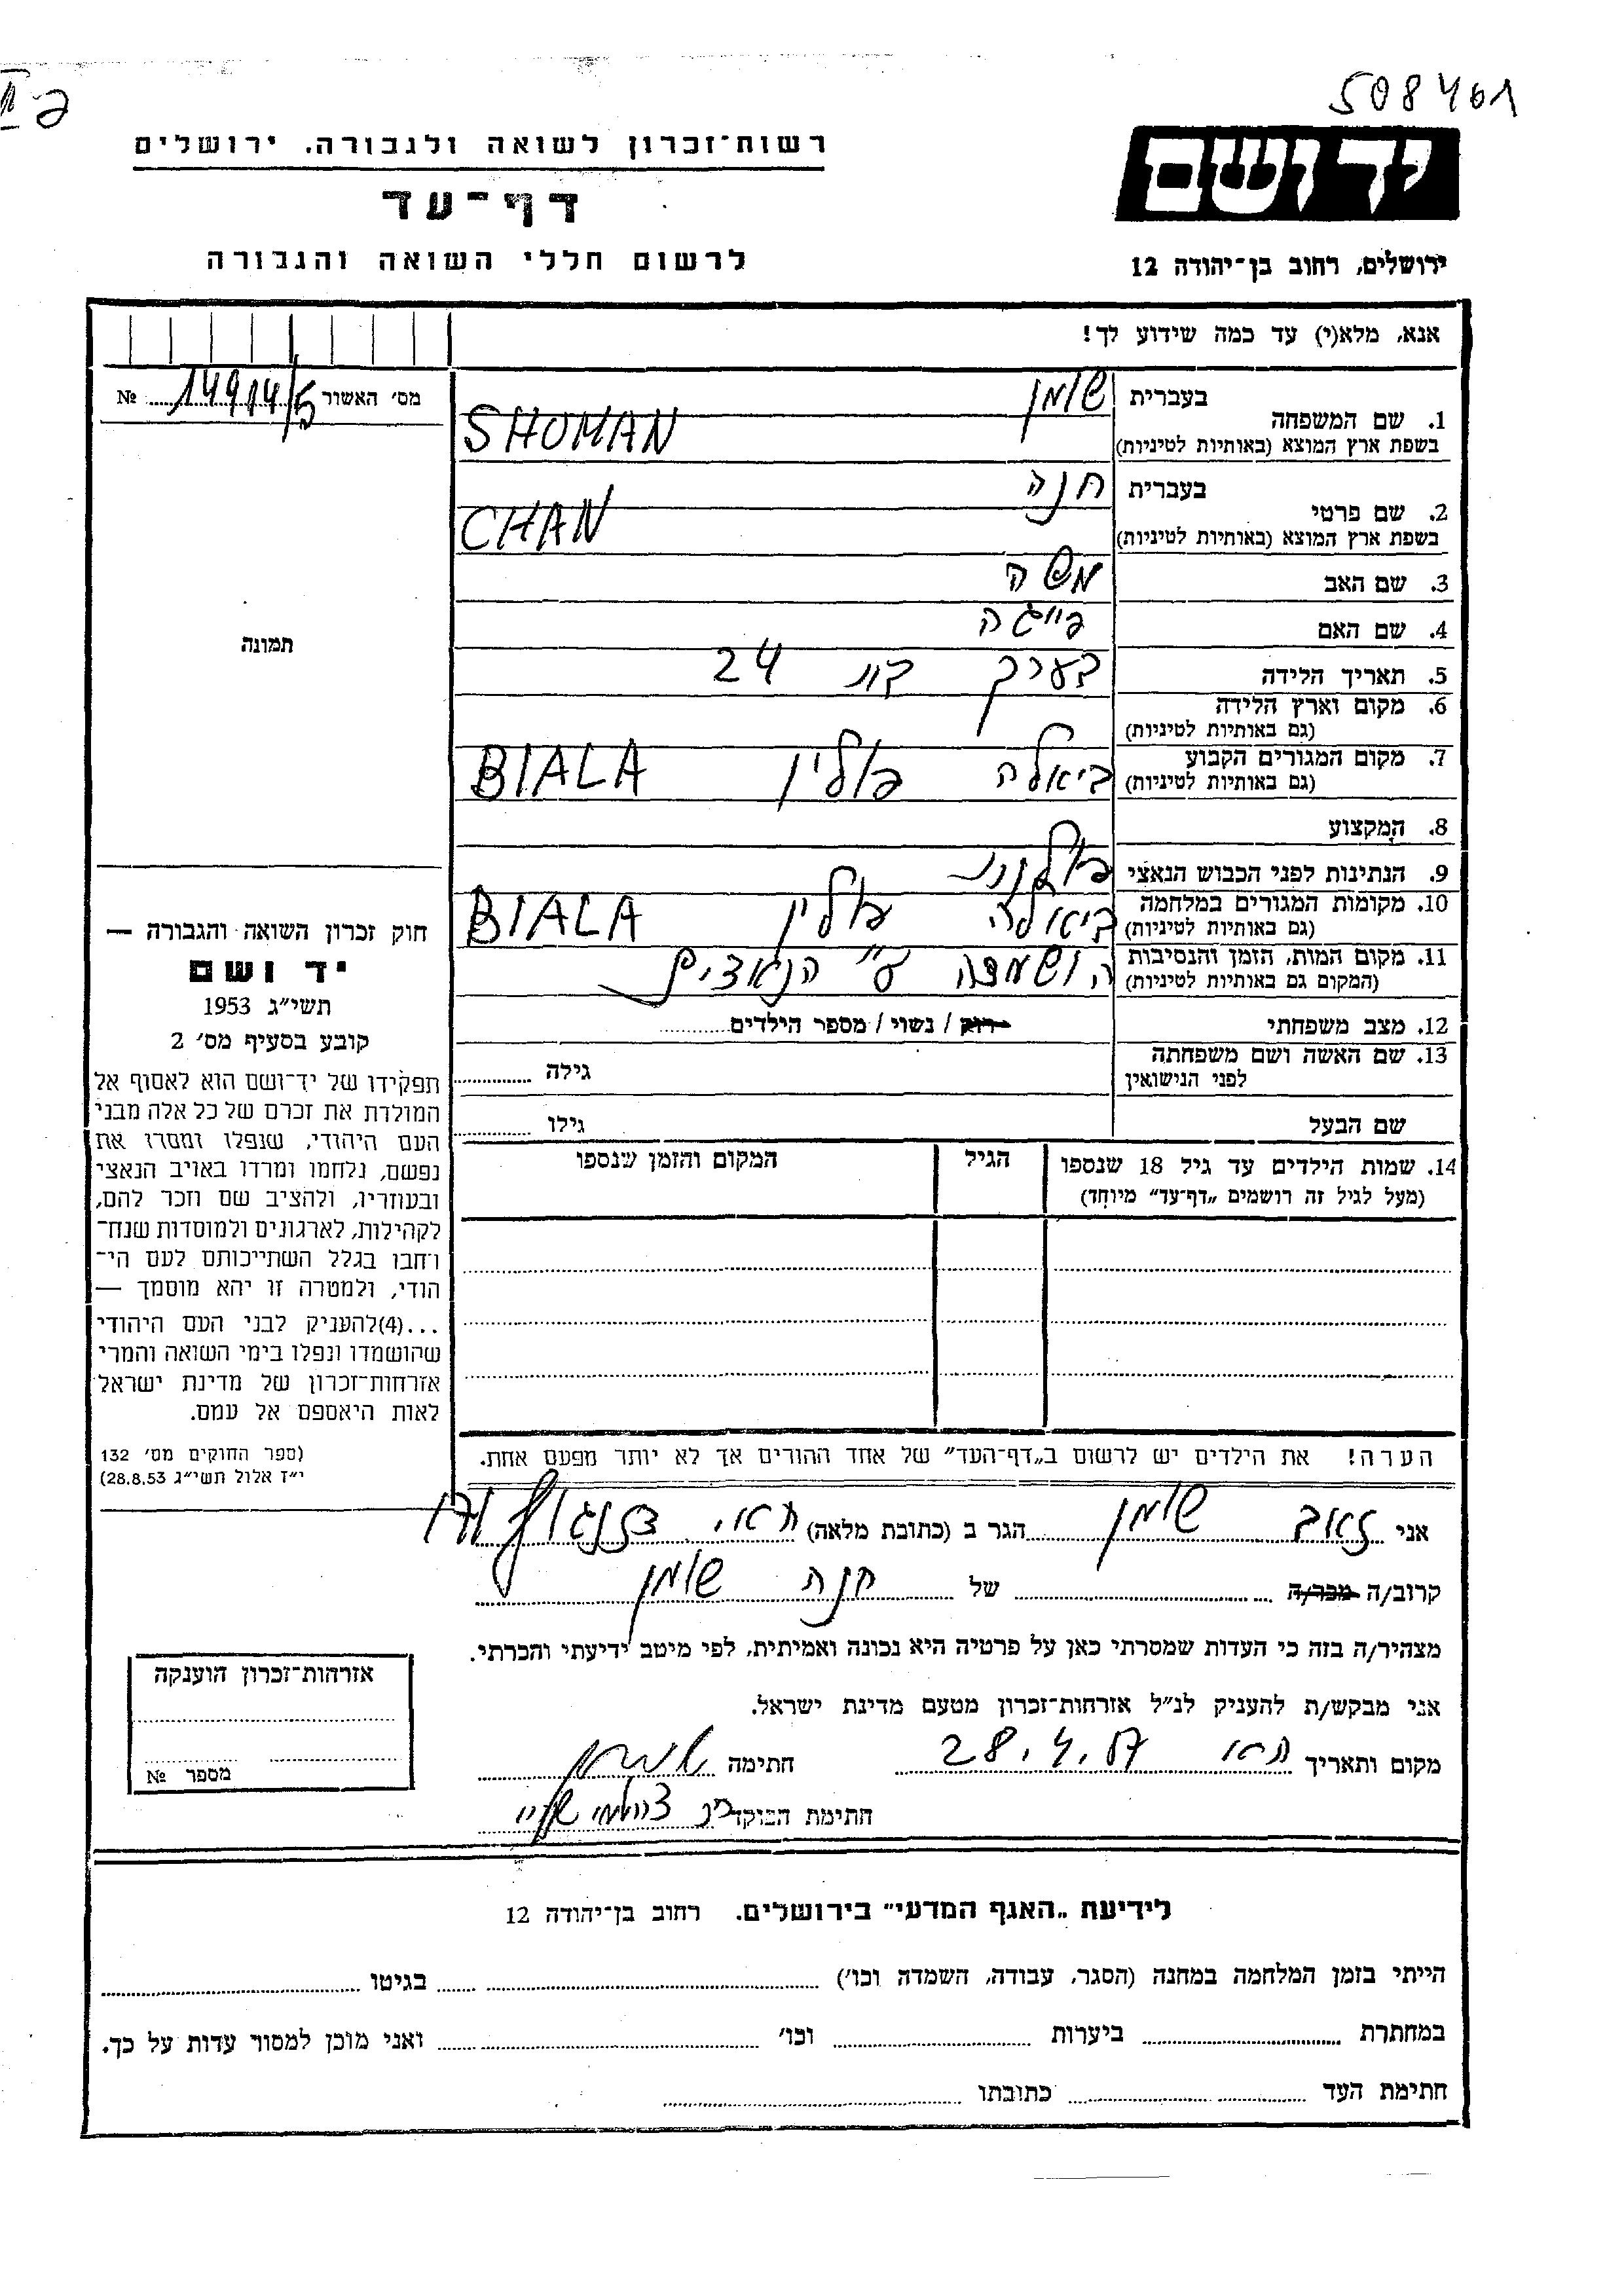 508401
יד ושם
ירושלים, רחוב בן־יהודה 12
רשות־זכרון לשואה ולגבורה. ירושלים
דף־עד
לרשום חללי השואה והגבורה
אנא, מלא(י) עד כמה שידוע לך!
מס׳ האשור 14914/5 №
1. שם המשפחה בעברית שומן
בשפת ארץ המוצא (באותיות לטיניות) SHOMAN
2. שם פרטי בעברית חנה
בשפת ארץ המוצא (באותיות לטיניות) CHAN
3. שם האב משה
4. שם האם פייגה
5. תאריך הלידה בערך 24
6. מקום וארץ הלידה
(גם באותיות לטיניות)
7. מקום המגורים הקבוע ביאלה פולין BIALA
(גם באותיות לטיניות)
8. המקצוע
9. הנתינות לפני הכבוש הנאצי פולנית
10. מקומות המגורים במלחמה ביאלה פולין BIALA
(גם באותיות לטיניות)
11. מקום המות, הזמן והנסיבות הושמדה ע״י הנאצים
(המקום גם באותיות לטיניות)
12. מצב משפחתי רוק / נשוי / מספר הילדים
13. שם האשה ושם משפחתה גילה
לפני הנישואין
שם הבעל גילו
14. שמות הילדים עד גיל 18 שנספו הגיל המקום והזמן שנספו
(מעל לגיל זה רושמים „דף־עד״ מיוחד)
הערה! את הילדים יש לרשום ב„דף־העד״ של אחד ההורים אך לא יותר מפעם אחת.
תמונה
חוק זכרון השואה והגבורה —
יד ושם
תשי״ג 1953
קובע בסעיף מס׳ 2
תפקידו של יד־ושם הוא לאסוף אל
המולדת את זכרם של כל אלה מבני
העם היהודי, שנפלו ומסרו את
נפשם, נלחמו ומרדו באויב הנאצי
ובעוזריו, ולהציב שם וזכר להם,
לקהילות, לארגונים ולמוסדות שנח־
רחבו בגלל השתייכותם לעם הי־
הודי, ולמטרה זו יהא מוסמך —
...(4)להעניק לבני העם היהודי
שהושמדו ונפלו בימי השואה והמרי
אזרחות־זכרון של מדינת ישראל
לאות היאספם אל עמם.
(ספר החוקים מס׳ 132
י״ז אלול תשי״ג 28.8.53)
אני זאב שומן הגר ב (כתובת מלאה)
קרוב/ה מכר/ה של חנה שומן
מצהיר/ה בזה כי העדות שמסרתי כאן על פרטיה היא נכונה ואמיתית, לפי מיטב ידיעתי והכרתי.
אני מבקש/ת להעניק לנ״ל אזרחות־זכרון מטעם מדינת ישראל.
מקום ותאריך 28.4.87 חתימה
חתימת הפוקד
אזרחות־זכרון הוענקה
מספר №
לידיעת „האגף המדעי״ בירושלים. רחוב בן־יהודה 12
הייתי בזמן המלחמה במחנה (הסגר, עבודה, השמדה וכו׳) בגיטו
במחתרת ביערות וכו׳ ואני מוכן למסור עדות על כך.
חתימת העד כתובתו